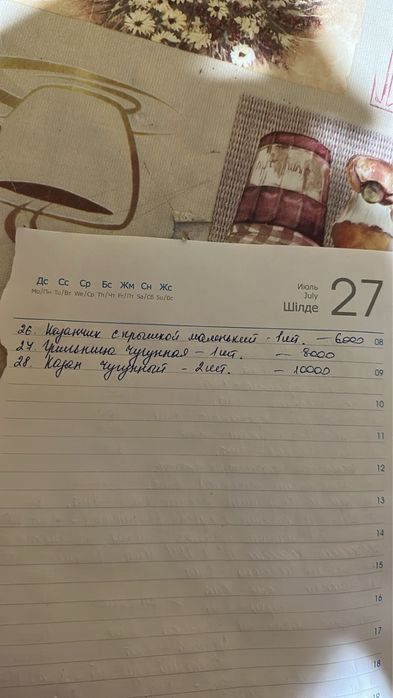 Дс Сс Ср Бс Жм Сн Жс
Mo/Пн Tu/Вт We/Ср Th/Чт Fr/Пт Sa/Сб Su/Вс
Июль
July
Шілде
27
26. Казанчик с крышкой маленький - 1 шт. - 6000
08
27. Грильница чугунная - 1 шт. - 8000
28. Казан чугунный - 2 шт. - 10000
09
10
11
12
13
14
15
16
17
18
19